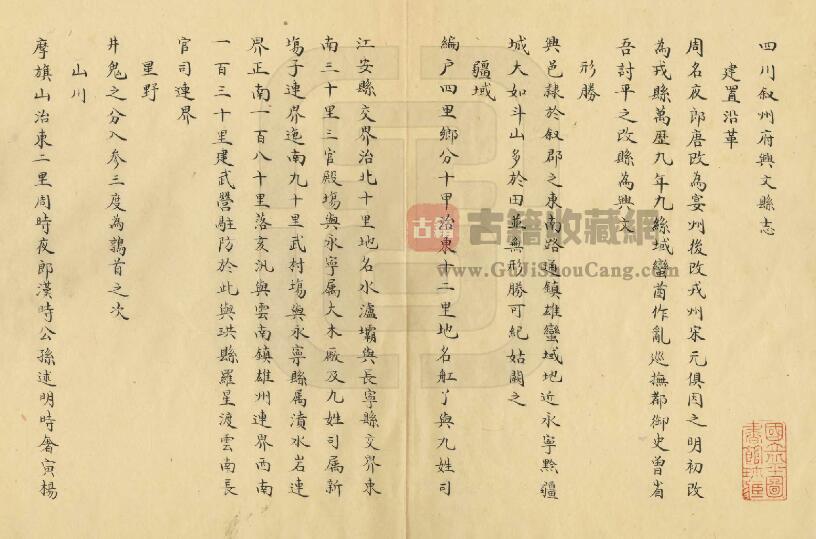 四川叙州府興文縣志
建置沿革
周名夜郎唐改為宴州後改戎州宋元俱因之明初改
為戎縣萬歷九年九絲域蠻酋作亂巡撫都御史曾省
吾討平之改縣為興文
形勝
興邑隸於叙郡之東南路通鎮雄蠻域地近永寧黔疆
城大如斗山多於田並無形勝可紀姑闕之
疆域
編户四里鄉分十甲治東十二里地名舡丫與九姓司
江安縣交界治北十里地名水瀘壩與長寧縣交界東
南三十里三官殿塲與永寧属大木厰及九姓司属新
塲子連界迤南九十里武村塲與永寧縣属瀆水岩連
界正南一百八十里落亥汛與雲南鎮雄州連界西南
一百三十里建武營駐防於此與珙縣羅星渡雲南長
官司連界
星野
井鬼之分入參三度為鶉首之次
山川
摩旗山治東二里周時夜郎漢時公孫述明時奢寅楊
古籍
古籍收藏網
www.GuJiShouCang.com
國立
圖
書館